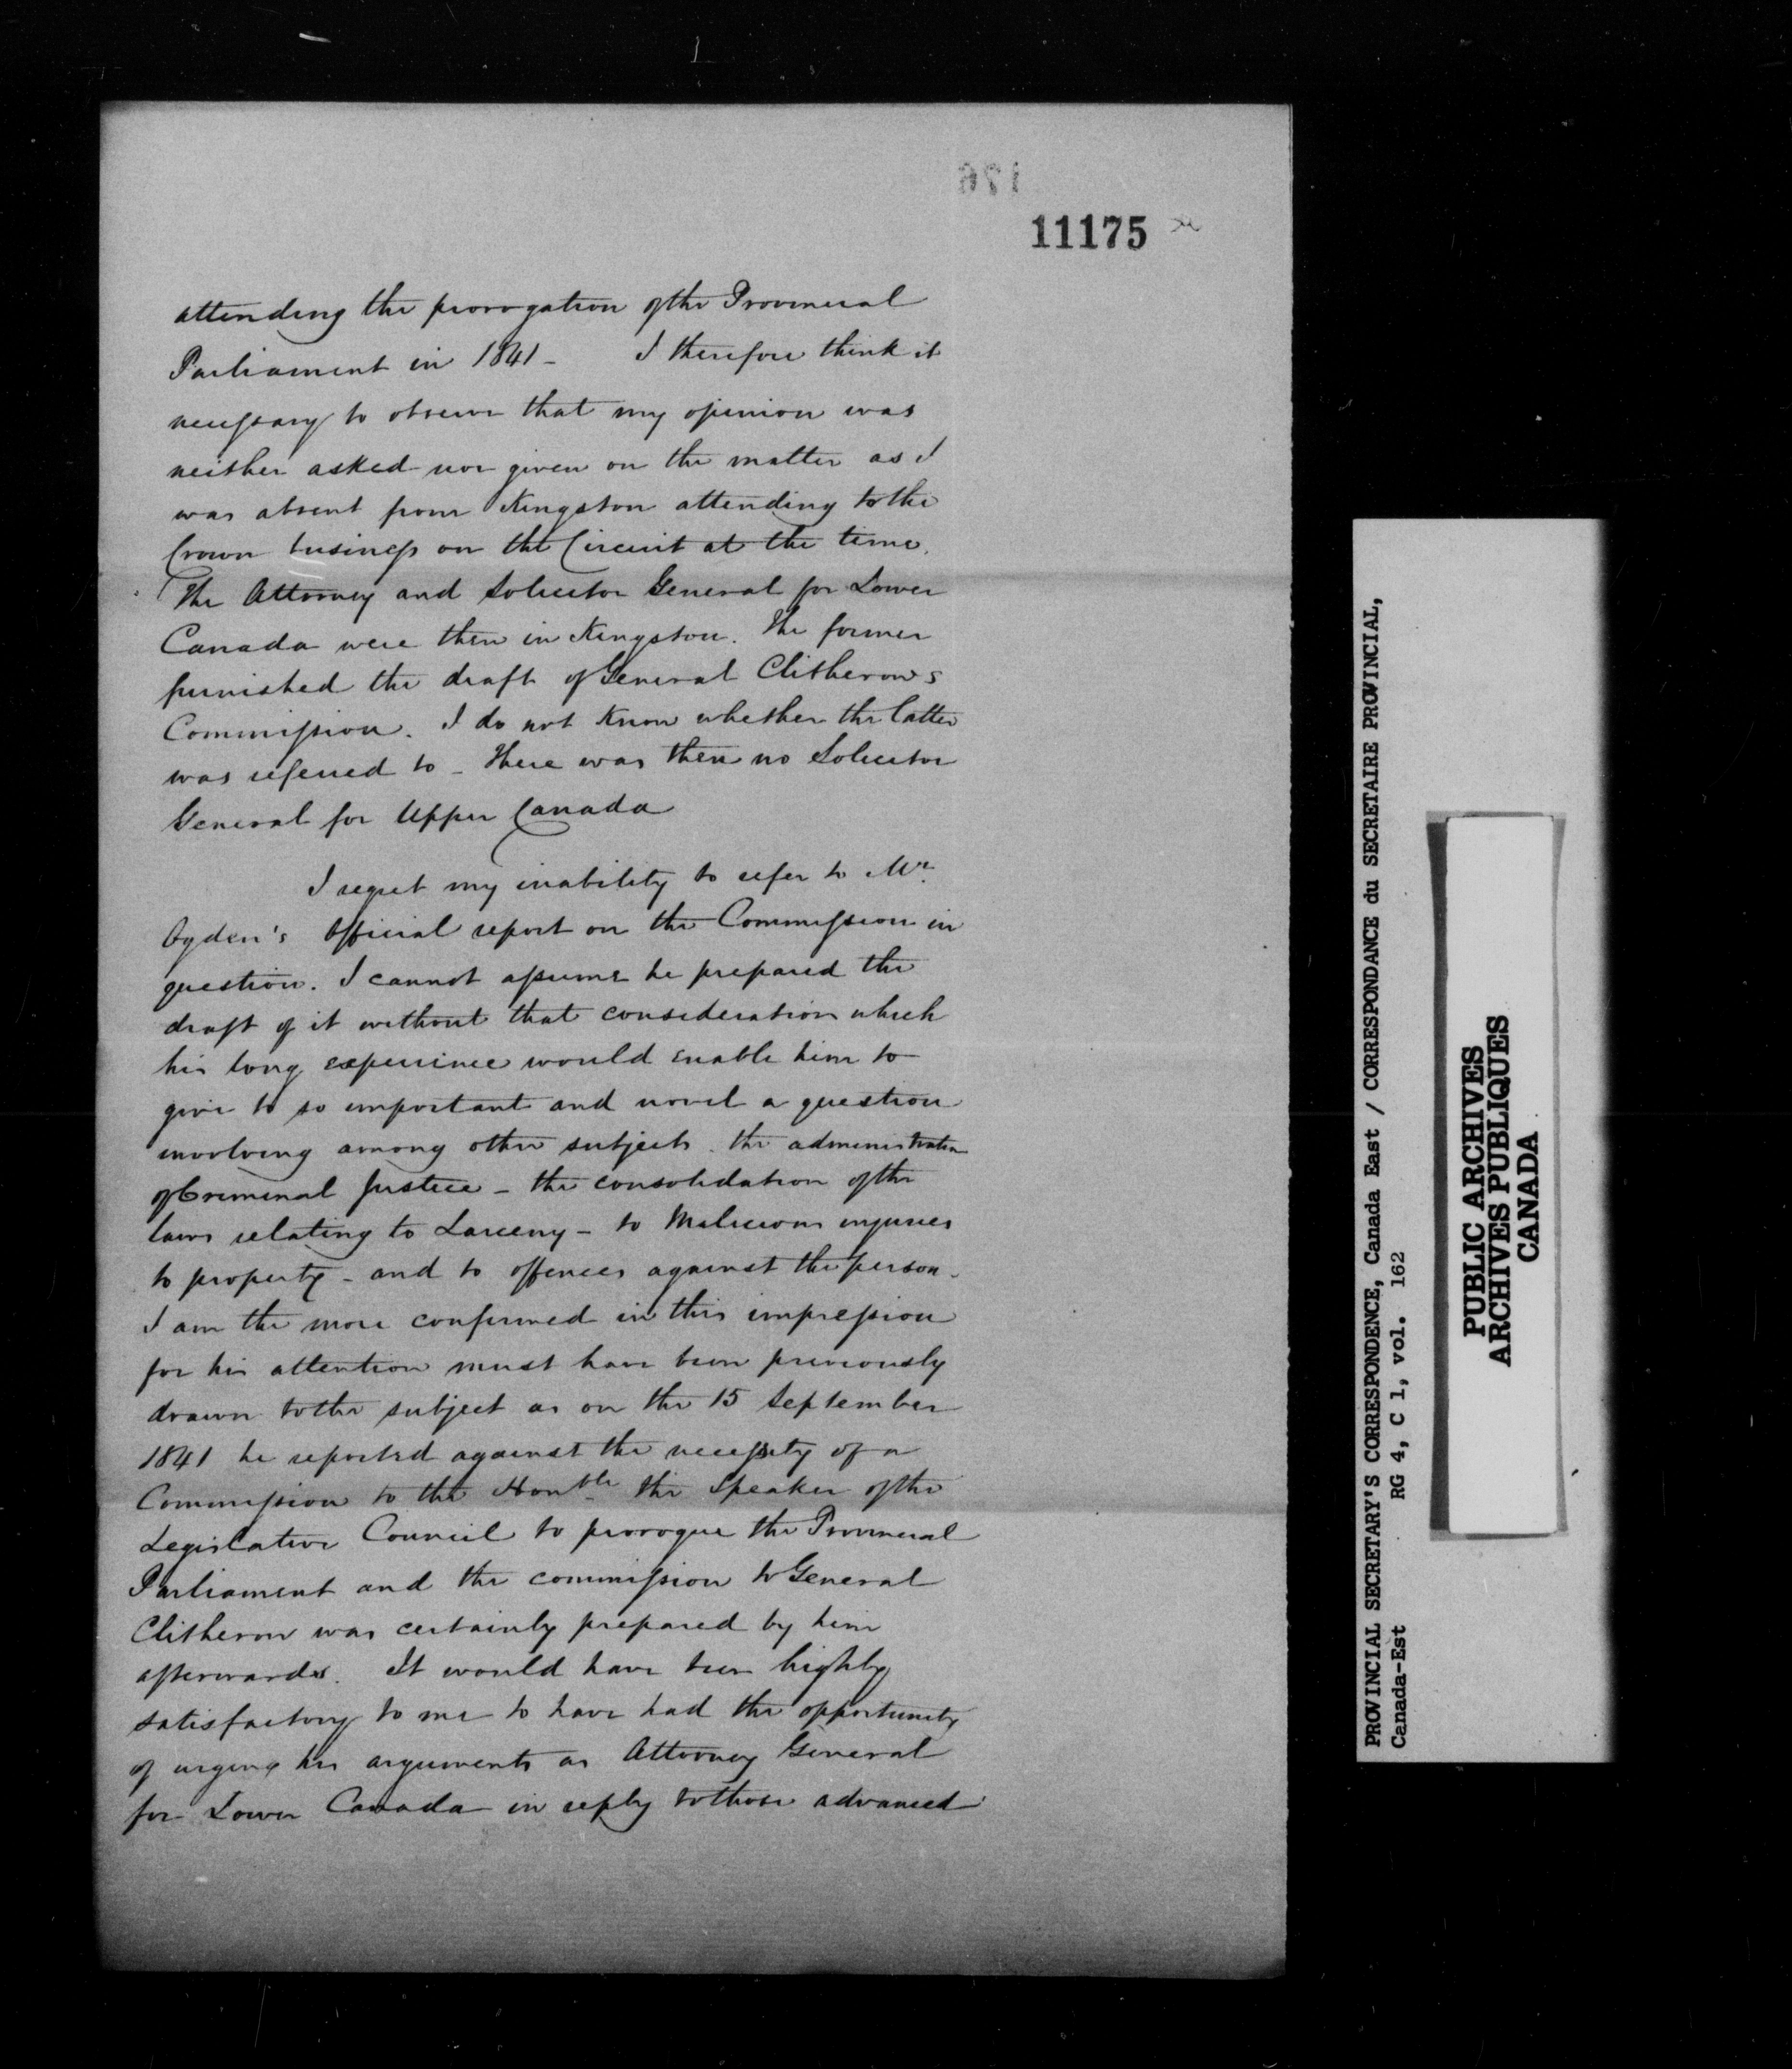 11175
attending the prorogation of the Provincial
Parliament in 1841 - I therefore think it
necessary to observe that my opinion was
neither asked nor given on the matter as I
was absent from Kingston attending to the
Crown business on the Circuit at the time.
The Attorney and Solicitor General for Lower
Canada were then in Kingston. The former
furnished the draft of General Clitherow's
Commission. I do not know whether the latter
was referred to - There was then no Solicitor
General for Upper Canada
I regret my inability to refer to Mr.
Ogden's Official report on the Commission in
question. I cannot assume he prepared the
draft of it without that consideration which
his long experience would enable him to
give to so important and novel a question
involving among other subjects the administration
of Criminal Justice - the consolidation of the
laws relating to Larceny - to Malicious injuries
to property - and to offences against the person.
I am the more confirmed in this impression
for his attention must have been previously
drawn to the subject as on the 15 September
1841 he reported against the necessity of a
Commission to the Honble the Speaker of the
Legislative Council to prorogue the Provincial
Parliament and the commission to General
Clitherow was certainly prepared by him
afterwards. It would have been highly
satisfactory to me to have had the opportunity
of urging his arguments as Attorney General
for Lower Canada in reply to those advanced
PROVINCIAL SECRETARY'S CORRESPONDENCE, Canada East / CORRESPONDANCE du SECRETAIRE PROVINCIAL,
Canada-Est RG 4, C 1, vol. 162
PUBLIC ARCHIVES
ARCHIVES PUBLIQUES
CANADA